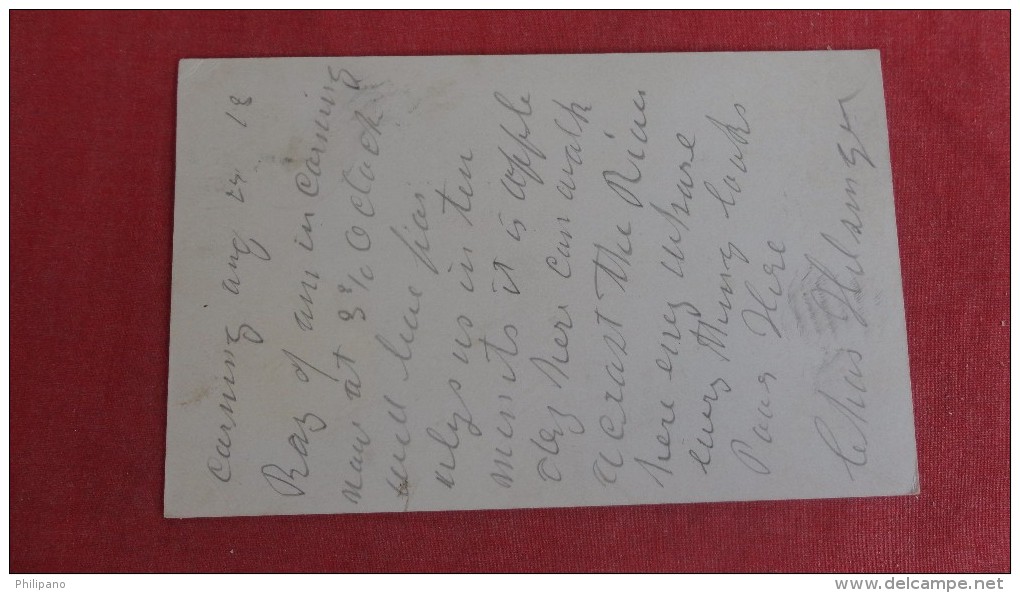 carning aug 23. 18
Ray of am in carning
now at 3 % O clock
will live
in ten
menits it is apple
dey here can walk
acrast the River
here eny whare
every thing looks
Poor Here
Chas Hilsinger
Philipano
www.delcampe.net